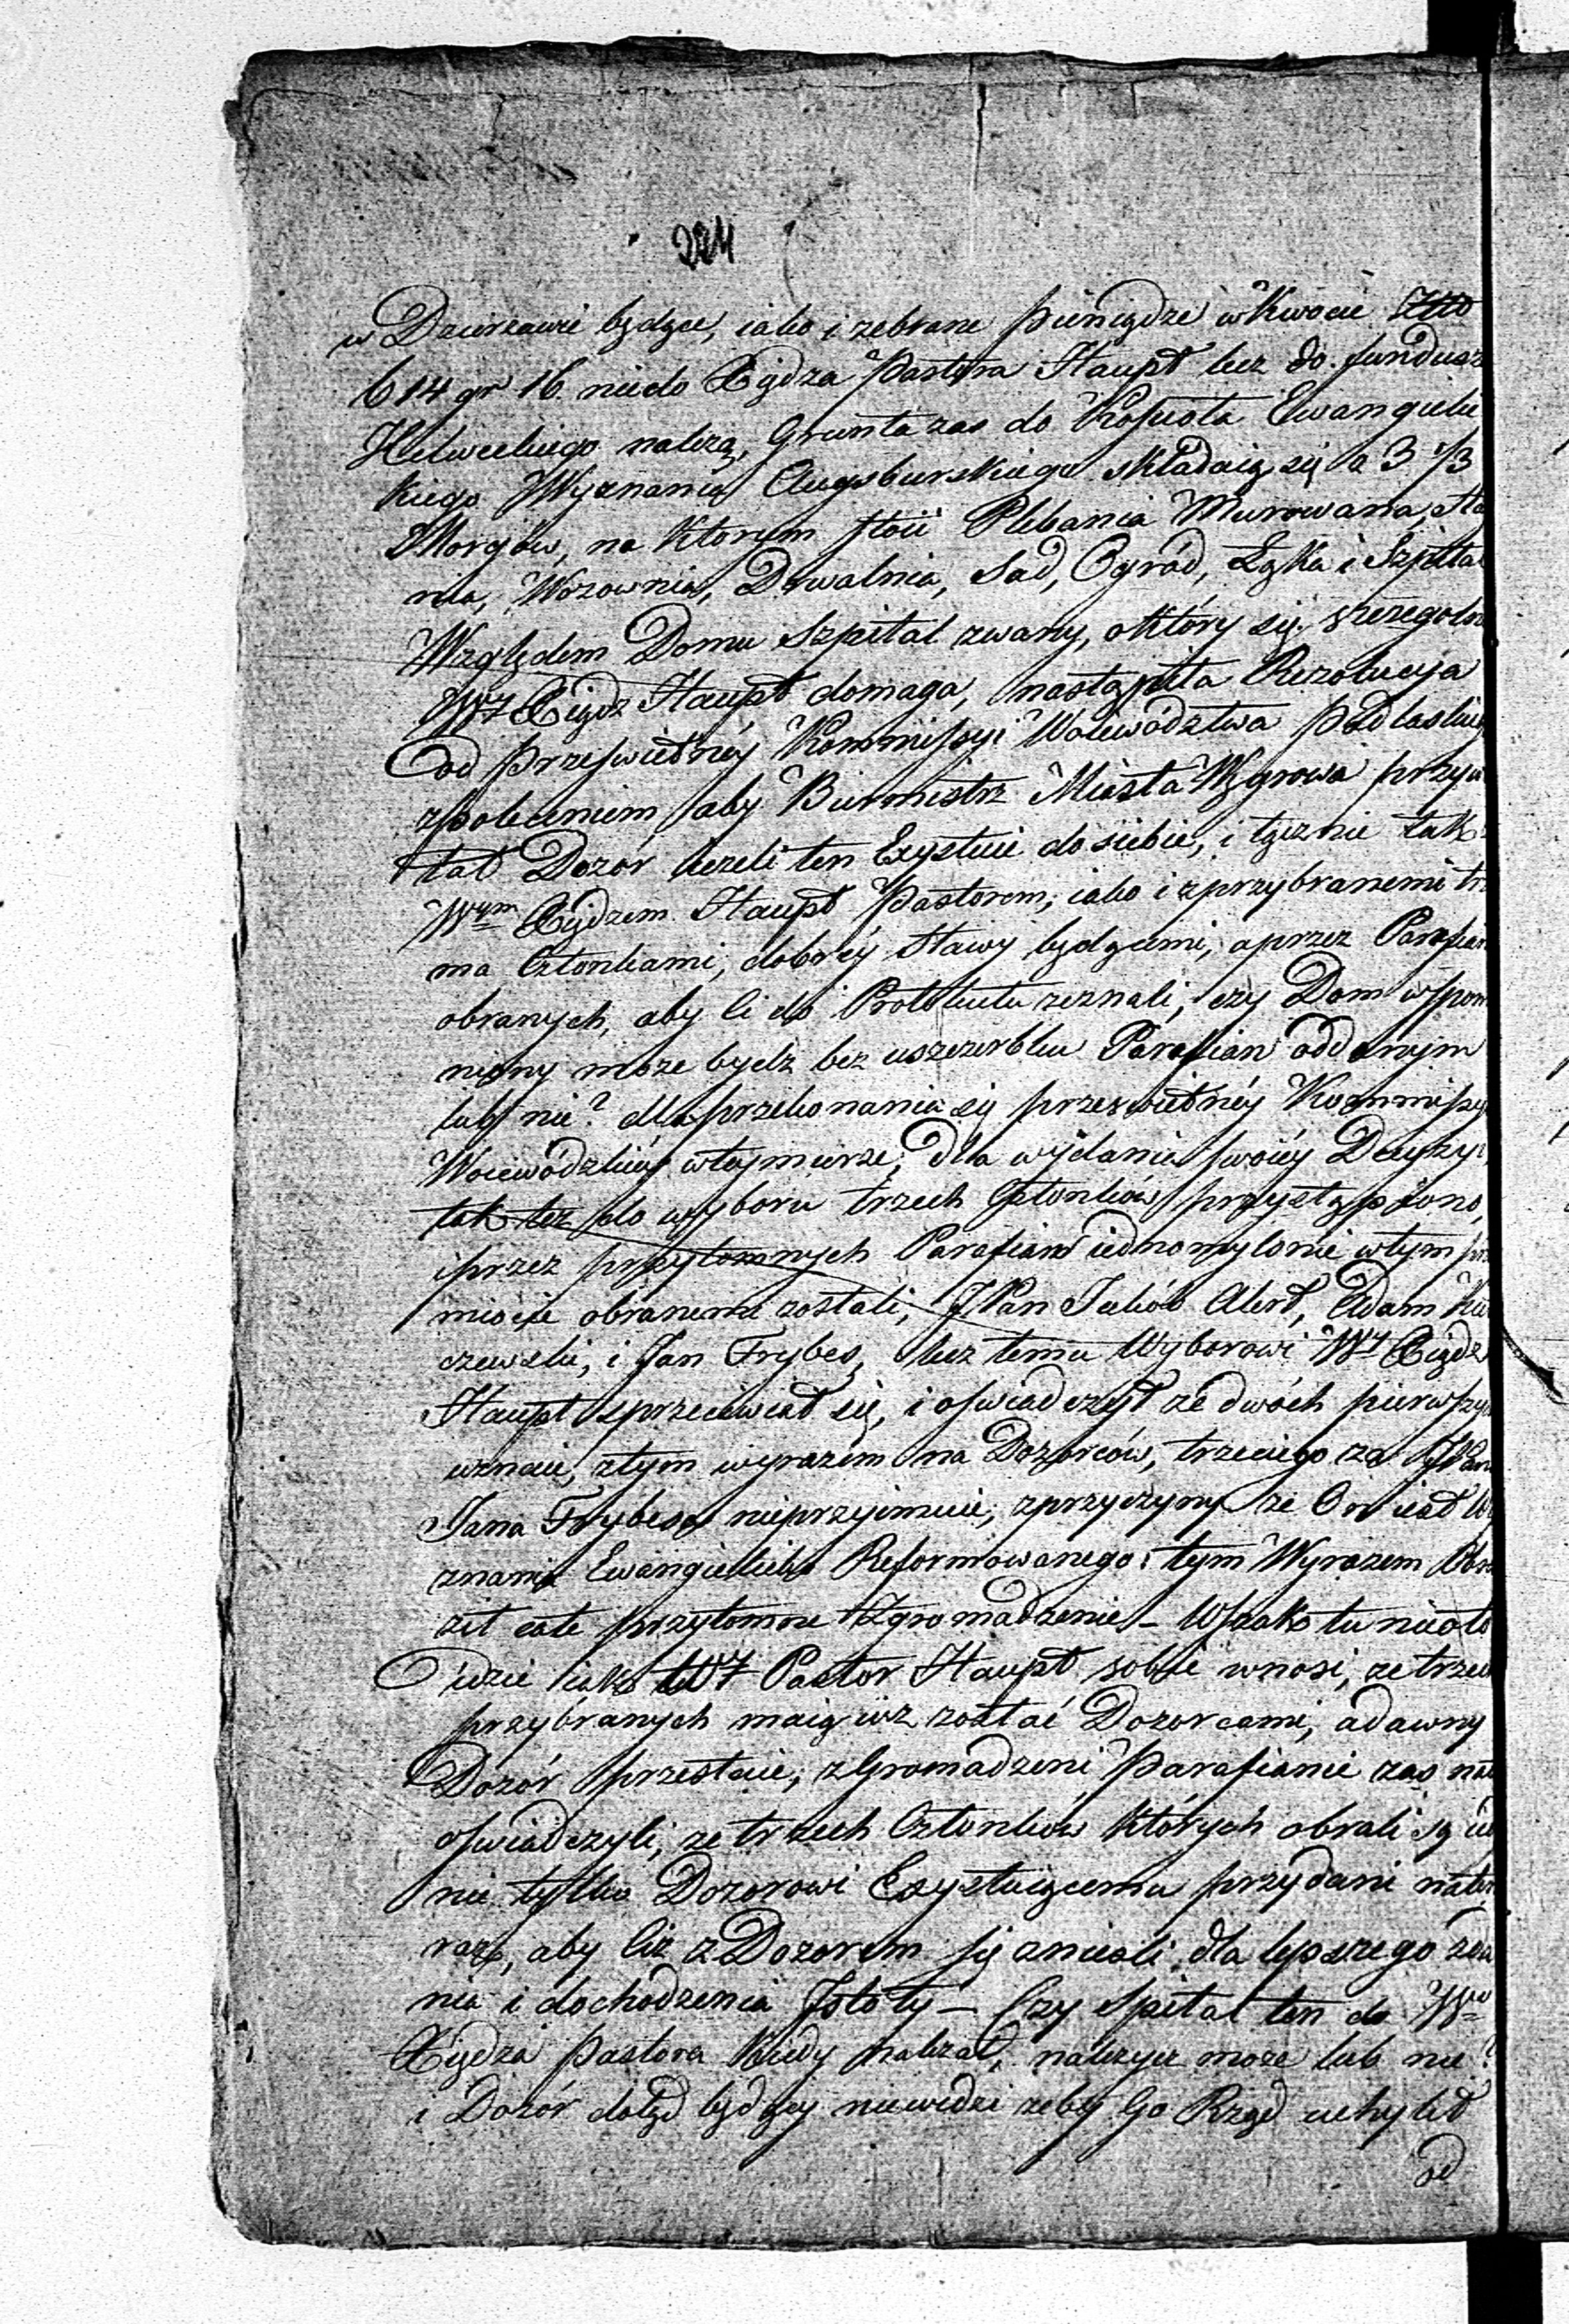 224
w Dzierzawie będące, iako i zebrane pieniądze w Kwocie Złto
614 gr 16. nie do Xiędza Pastora Haupt lecz do fundusz
Helweckiego należą, Grunta zas do Kościoła Ewangielic
kiego Wyznania Augsburskiego składaią się a 3 1/3
Morgów, na Ktorym stoii Plebania Murowana, Sta
nia, Wozownia, Drwalnia, Sad, Ogród, Łąka i Szpital
Względem Domu Szpital zwany, o Który się szczegoln
Wy Xiądz Haupt domaga, nastąpiła Rezolucyia
Od Prześwietnéy Kommissyi Woiewództwa Podlaskie
z poleceniem aby Burmistrz Miasta Węgrowa przyw
łał Dozór ieżeli ten Exystuie do siebie, i łącznie tak
Wym Xiędzem Haupt Pastorem, iako i z przybranemi trz
ma Członkami, dobréy sławy będącemi, a przez Parafian
obranych, aby Ci do Protokułu zeznali, czy Dom wspom
niony może bydz bez uszczerbku Parafian oddanym
lub nie? dla przekonania się prześwietnéy Kommissyi
Woiewódzkiéy w téy mierze, dla wydania swoiéy Decyzyi
tak też do wyboru trzech Członków przystąpiono,
i przez przytomnych Parafian iednomyslnie w tym prz
miocie obranemi zostali, JPan Jakób Alert, Adam
czewski, i Jan Frybes, lecz temu Wyborowi Wy Xiądz
Haupt sprzeciwiał się, i oświadczył ze dwóch pierwszych
uznaie, z tym wyrazem na Dozorców, trzeciego za JPan
Jana Frybesa nieprzyimuie, z przyczyny ze On iest Wy
znania Ewangielicko Reformowanego; tym Wyrazem Obra
ził całe przytomne Zgromadzenie – Wszak tu nie o to
idzie iak Wy Pastor Haupt sobie wnosi, ze trzech
przybranych maią iuż zostać Dozorcami, a dawny
Dozór przestaie; zgromadzeni Parafianie zaś na
oświadczyli, ze trzech Członków Których obrali są ie
nie tylko Dozorowi Exystuiącemu przydani na ten
raz, aby Ciż z Dozorem się znieśli, dla lepszego zda
nia i dochodzenia Istoty – Czy Spital ten do Wo
Xiędza Pastora Kiedy należał, należyć może lub nie?
i Dozór dotąd będący niewidzi żeby Go Rząd uchylił
od